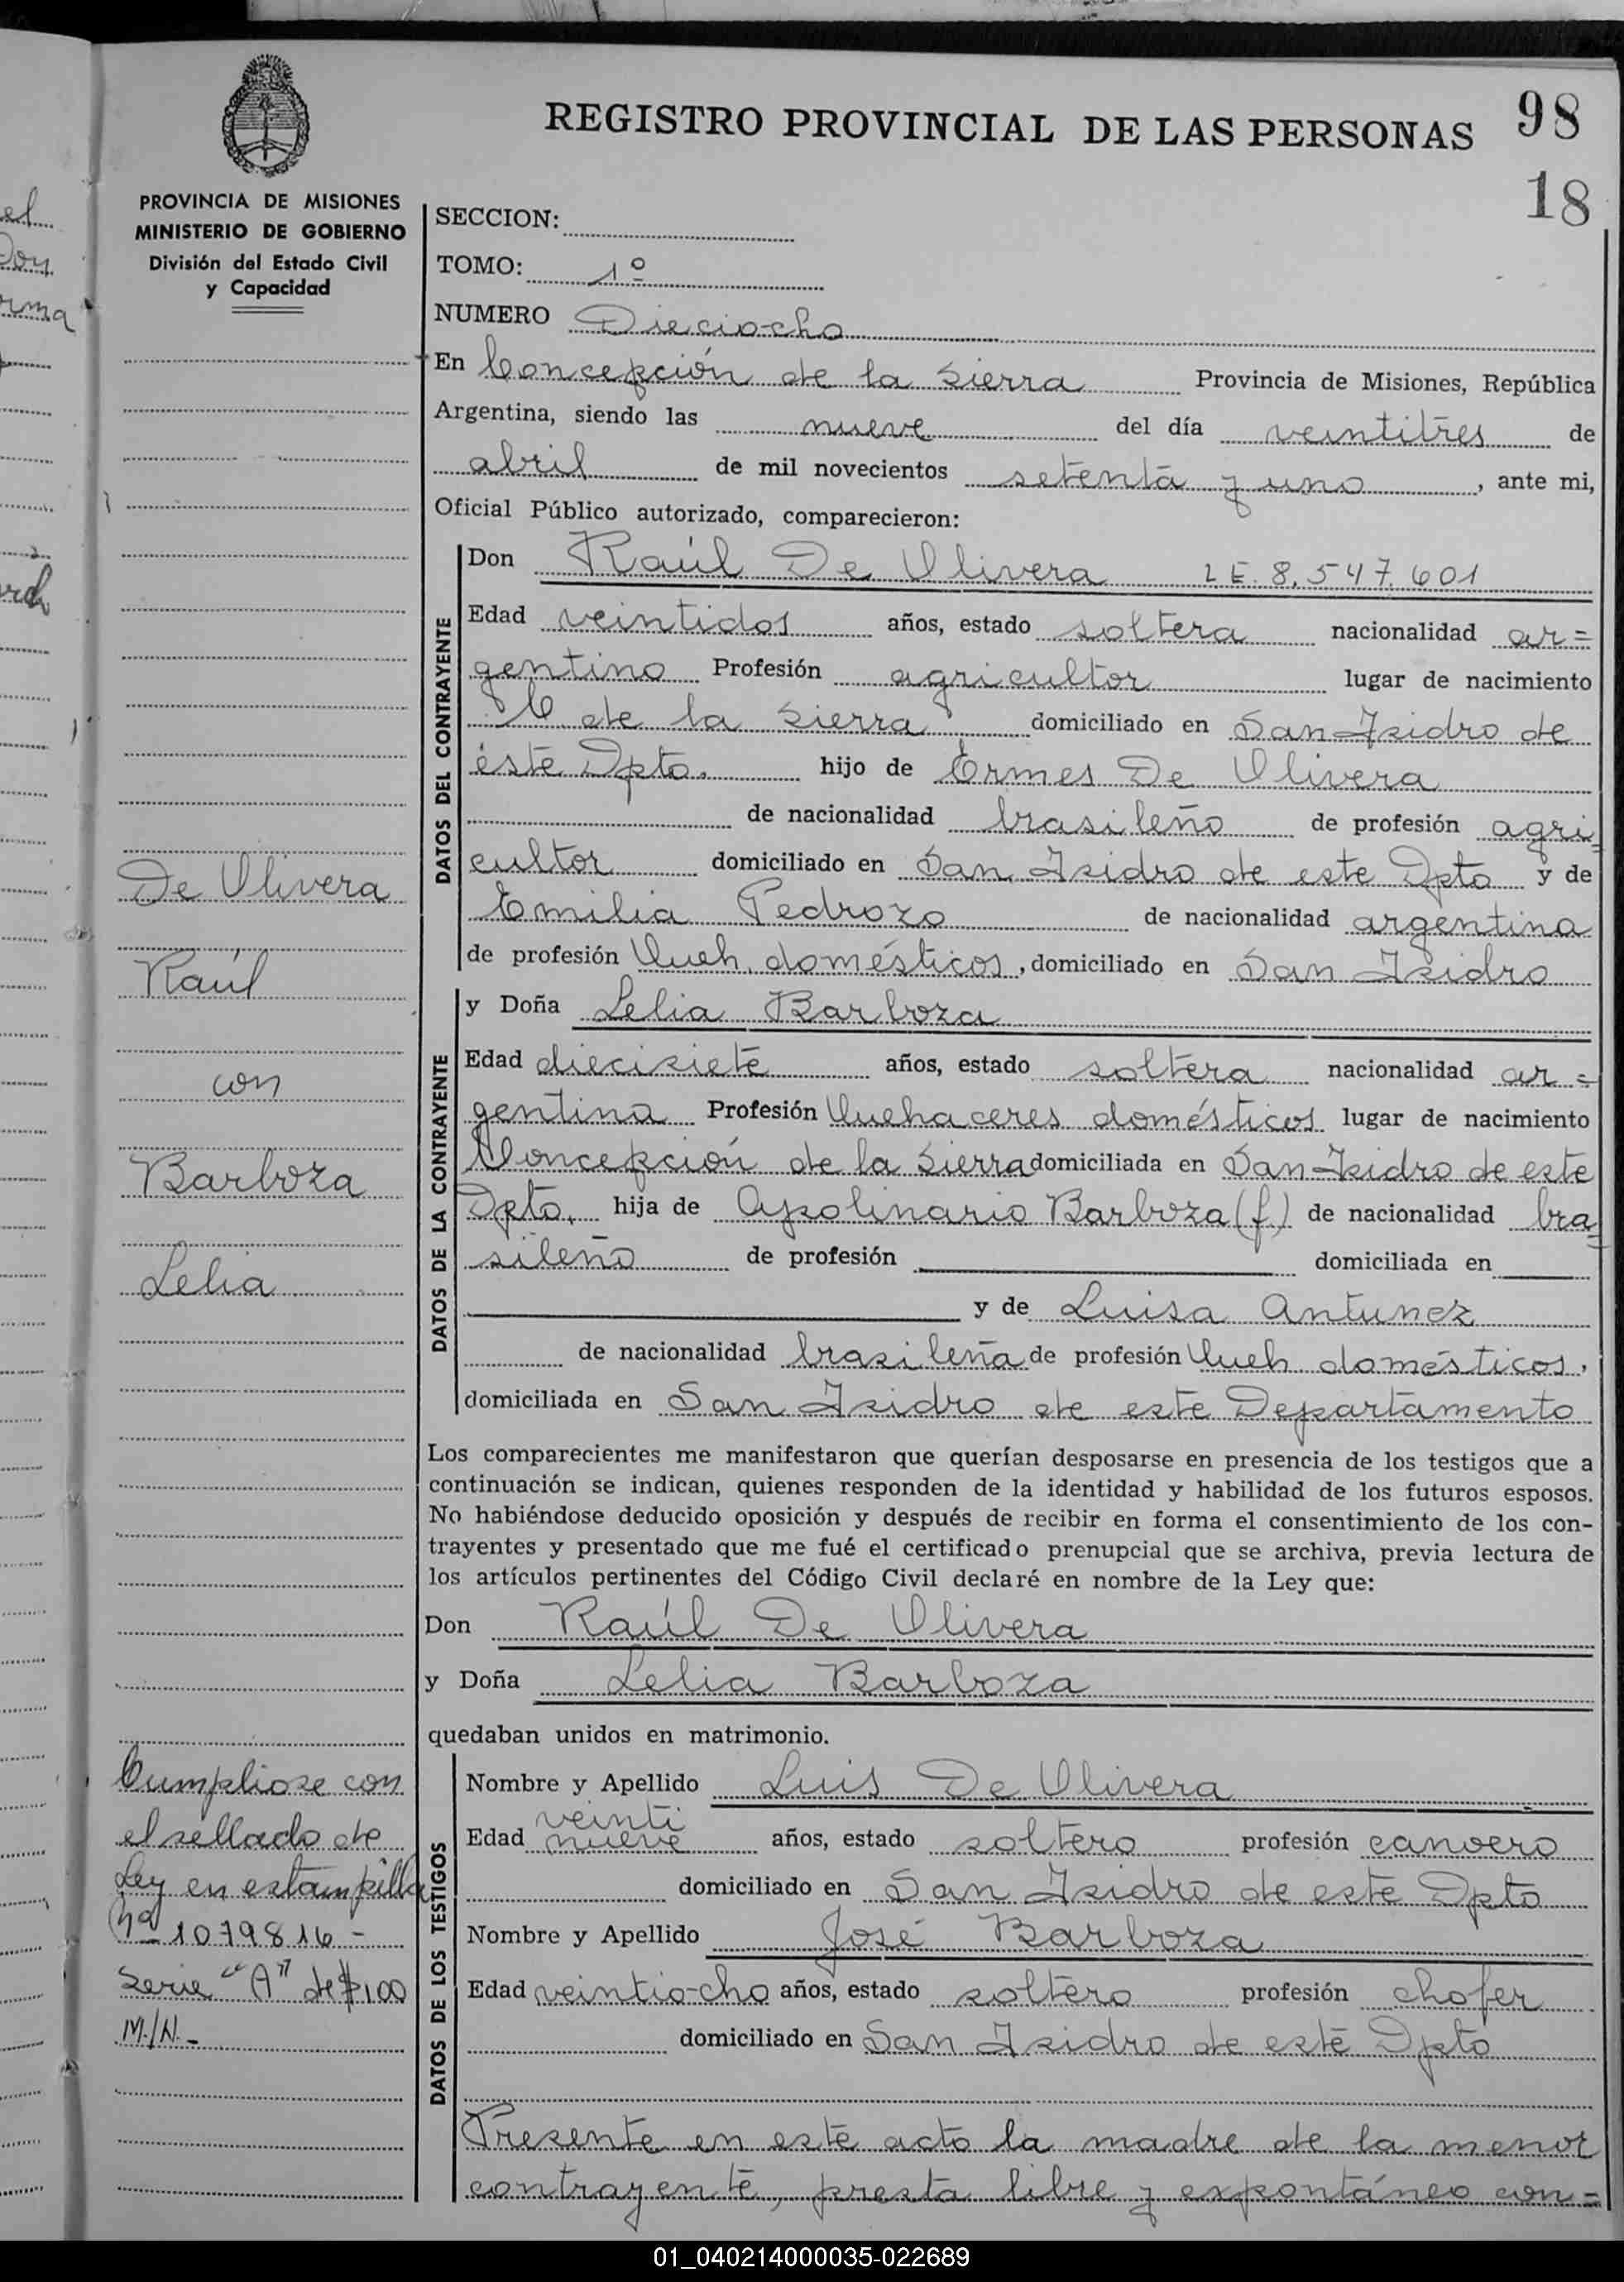 REGISTRO PROVINCIAL DE LAS PERSONAS
98
18
PROVINCIA DE MISIONES
MINISTERIO DE GOBIERNO
División del Estado Civil
y Capacidad
SECCION:
TOMO: 1º
NUMERO Dieciocho
En Concepción de la Sierra Provincia de Misiones, República
Argentina, siendo las nueve del día veintitres de
abril de mil novecientos setenta y uno, ante mi,
Oficial Público autorizado, comparecieron:
DATOS DEL CONTRAYENTE
Don Raúl De Olivera LE. 8.547.601
Edad veintidos años, estado soltera nacionalidad ar=
gentino Profesión agricultor lugar de nacimiento
C de la Sierra domiciliado en San Isidro de
éste Dpto. hijo de Ermes De Olivera
de nacionalidad brasileño de profesión agri=
cultor domiciliado en San Isidro de este Dpto y de
Emilia Pedrozo de nacionalidad argentina
de profesión Queh. domésticos, domiciliado en San Isidro
De Olivera
Raúl
con
Barboza
Lelia
DATOS DE LA CONTRAYENTE
y Doña Lelia Barboza
Edad diecisiete años, estado soltera nacionalidad ar=
gentina Profesión Quehaceres domésticos lugar de nacimiento
Concepción de la Sierra domiciliada en San Isidro de este
Dpto. hija de Apolinario Barboza (f.) de nacionalidad bra=
sileño de profesión domiciliada en
y de Luisa Antunez
de nacionalidad brasileña de profesión Queh domésticos,
domiciliada en San Isidro de este Departamento
Los comparecientes me manifestaron que querían desposarse en presencia de los testigos que a
continuación se indican, quienes responden de la identidad y habilidad de los futuros esposos.
No habiéndose deducido oposición y después de recibir en forma el consentimiento de los con-
trayentes y presentado que me fué el certificado prenupcial que se archiva, previa lectura de
los artículos pertinentes del Código Civil declaré en nombre de la Ley que:
Don Raúl De Olivera
y Doña Lelia Barboza
quedaban unidos en matrimonio.
Cumpliose con
el sellado de
Ley en estampilla
Nº 1079816-
Serie "A" de $100
M./N.-
DATOS DE LOS TESTIGOS
Nombre y Apellido Luis De Olivera
veinti
Edad nueve años, estado soltero profesión canoero
domiciliado en San Isidro de este Dpto
Nombre y Apellido José Barboza
Edad veintiocho años, estado soltero profesión chofer
domiciliado en San Isidro de este Dpto
Presente en este acto la madre de la menor
contrayente, presta libre y expontáneo con=
01_040214000035-022689